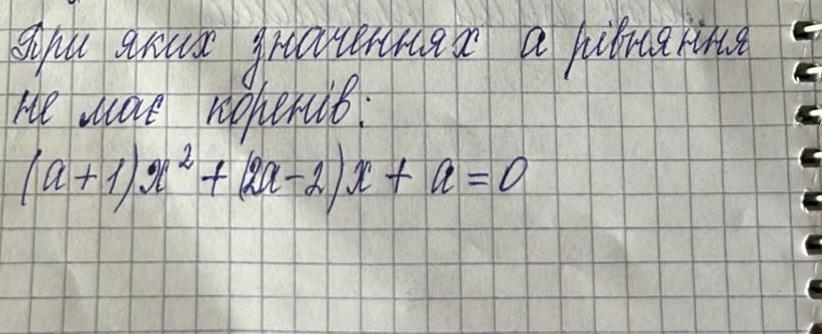 При яких значеннях а рівняння
не має коренів:
(a+1)x² + (2a-2)x + a = 0